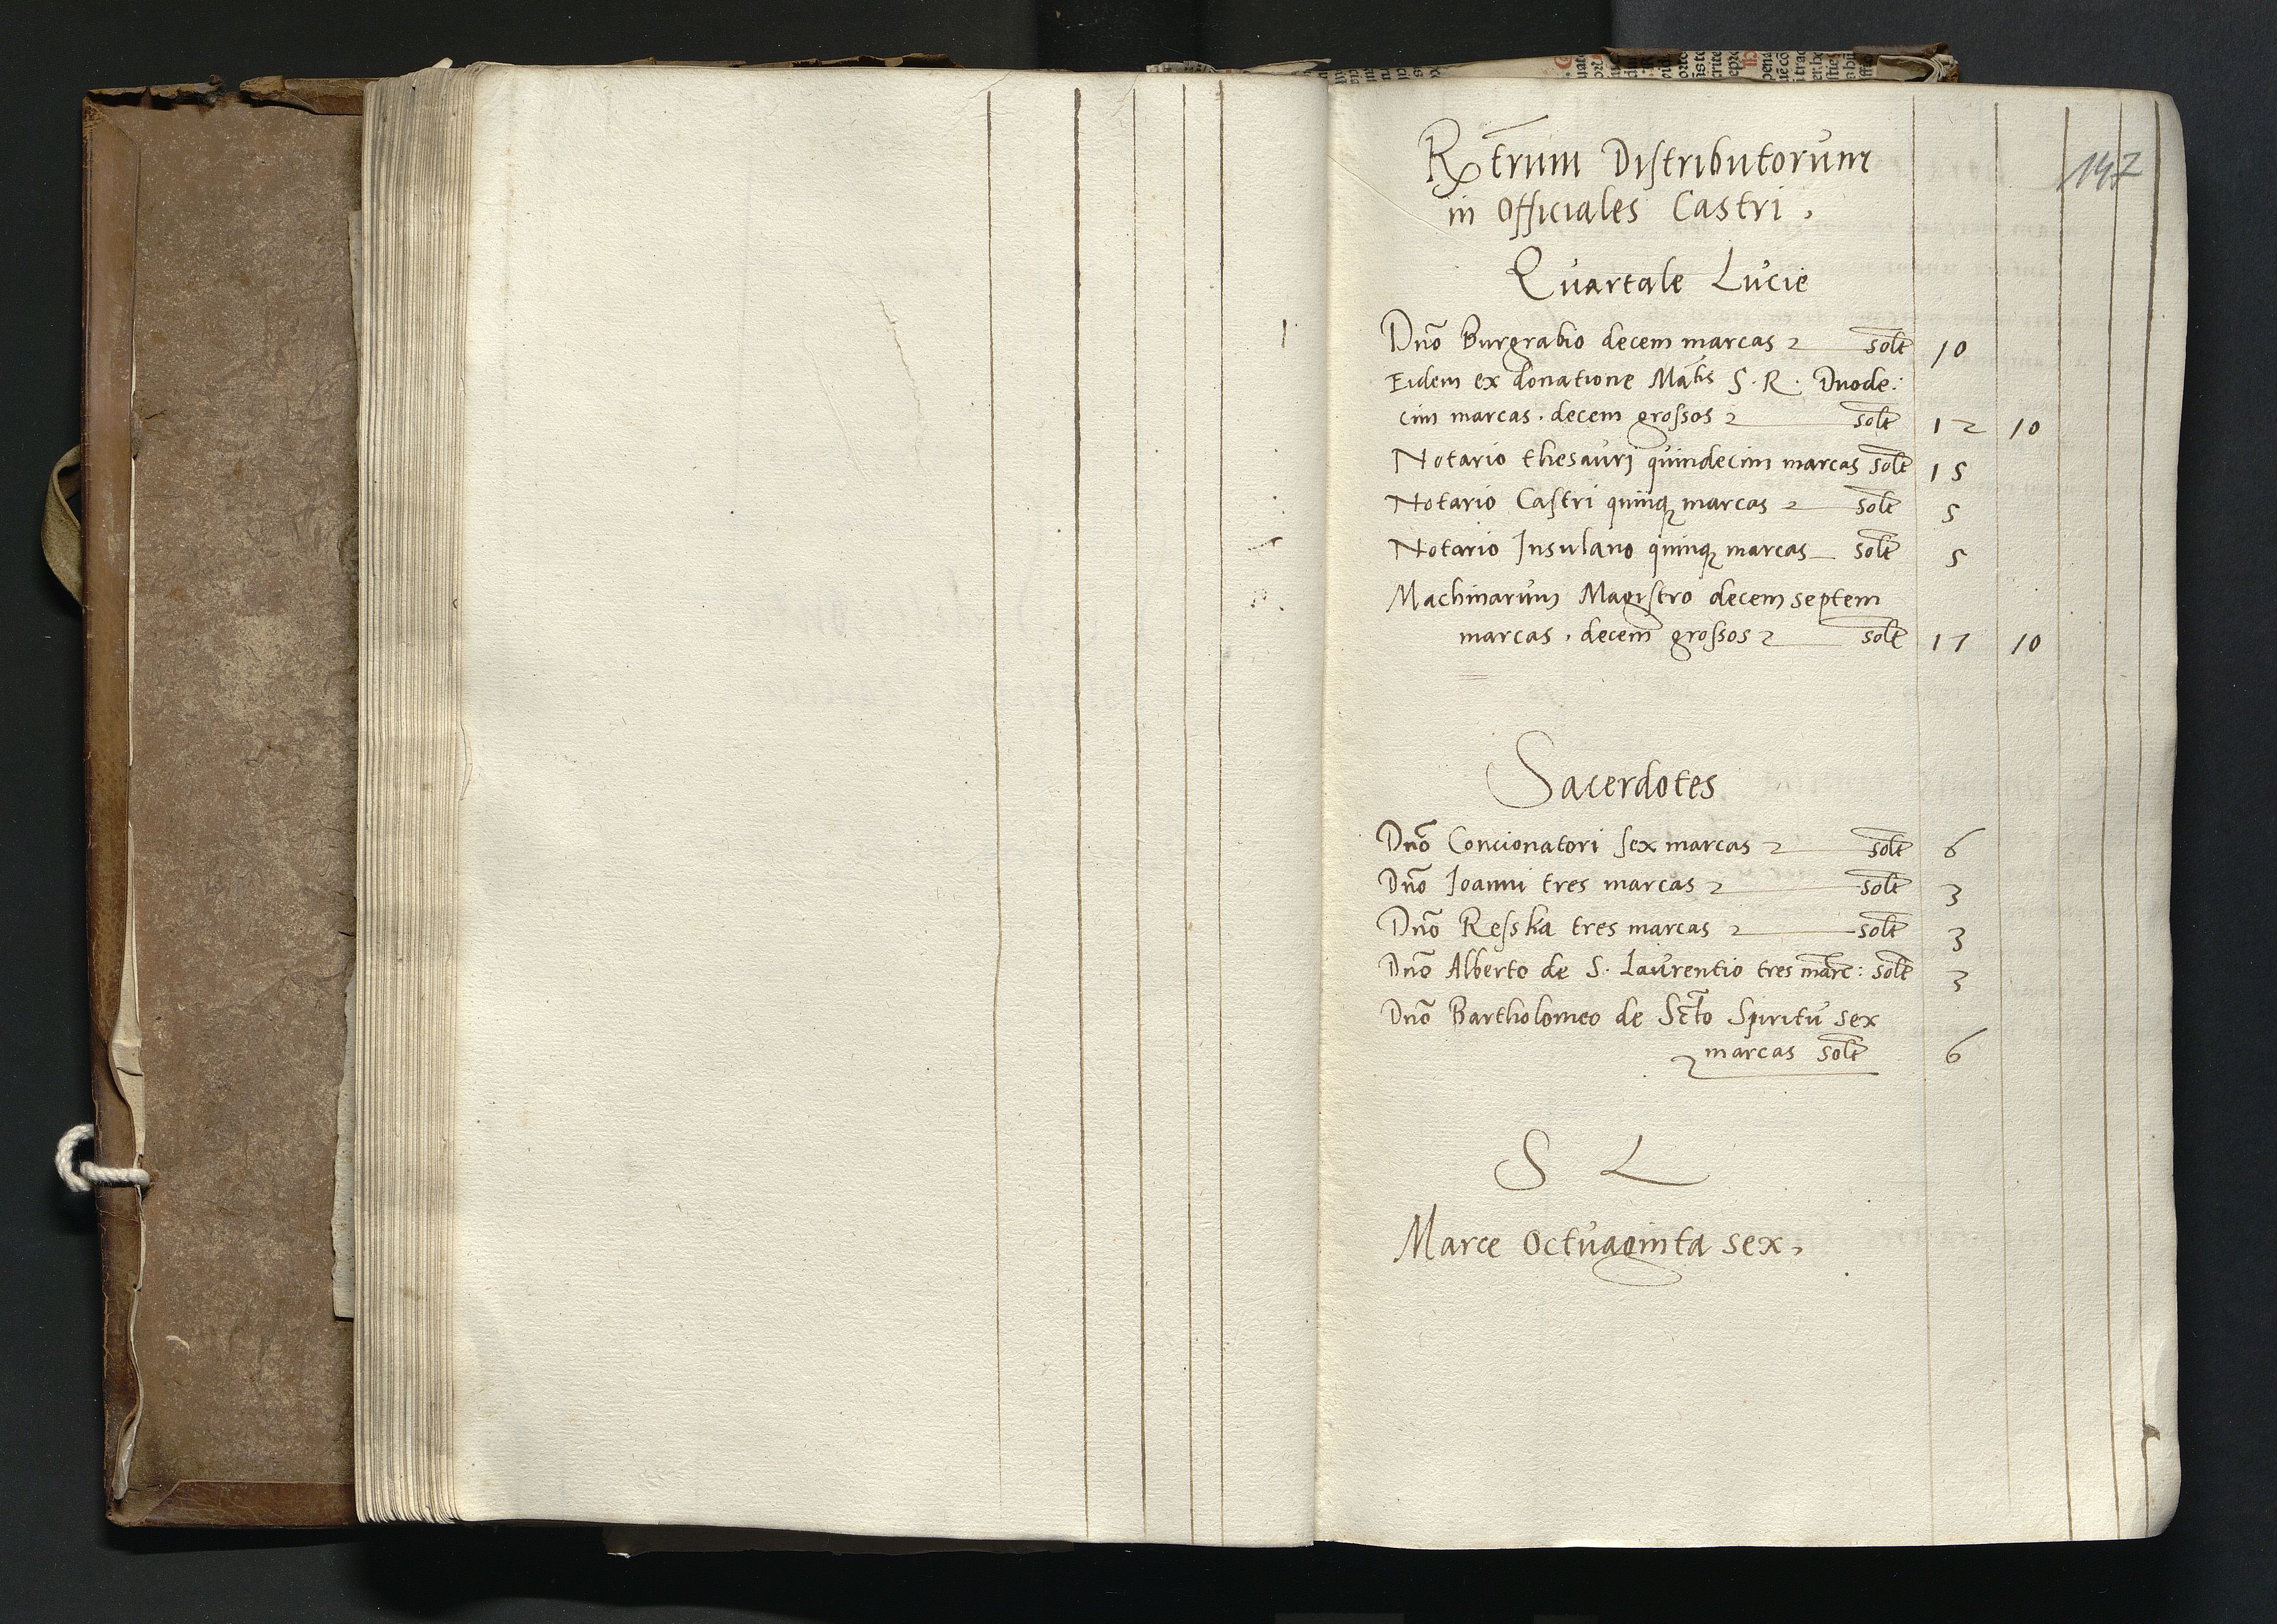 147
Rt̄rum Distributorum
in Officiales Castri.
Quartale Lucie
Dno̅ Burgrabio decem marcas solt 10
Eidem ex donatione Mātis S. R. Duode:
cim marcas. decem grossos solt 12 10
Notario thesauri quindecim marcas solt 15
Notario Castri quinq marcas solt 5
Notario Insulano quinq marcas solt 5
Machinarum Magistro decem septem
marcas. decem grossos solt 17 10
Sacerdotes
Dno̅ Concionatori sex marcas solt 6
Dno̅ Joanni tres marcas solt 3
Dno̅ Resska tres marcas solt 3
Dno̅ Alberto de S. Laurentio tres marc: solt 3
Dno̅ Bartholomeo de Scto Spiritu sex
marcas solt 6
S L
Marce Octuaginta sex.